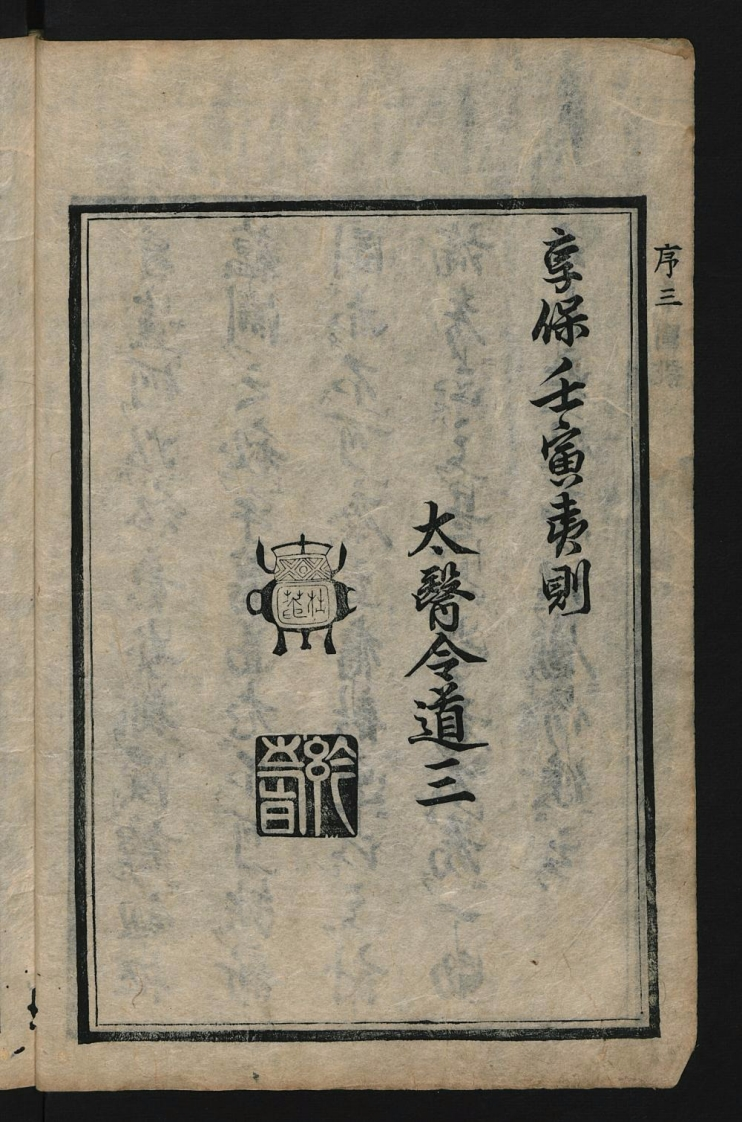 序三
享保壬寅夷則
太醫令道三